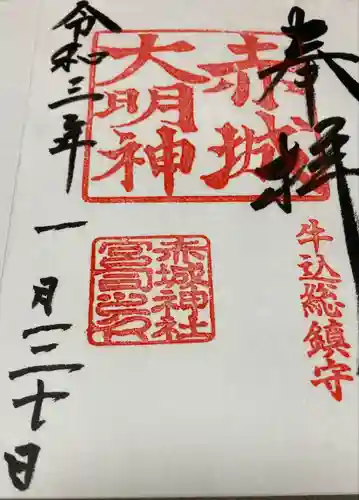 奉拝
牛込総鎮守
赤城
大明神
赤城神社
宮司之印
令和三年
一月三十日